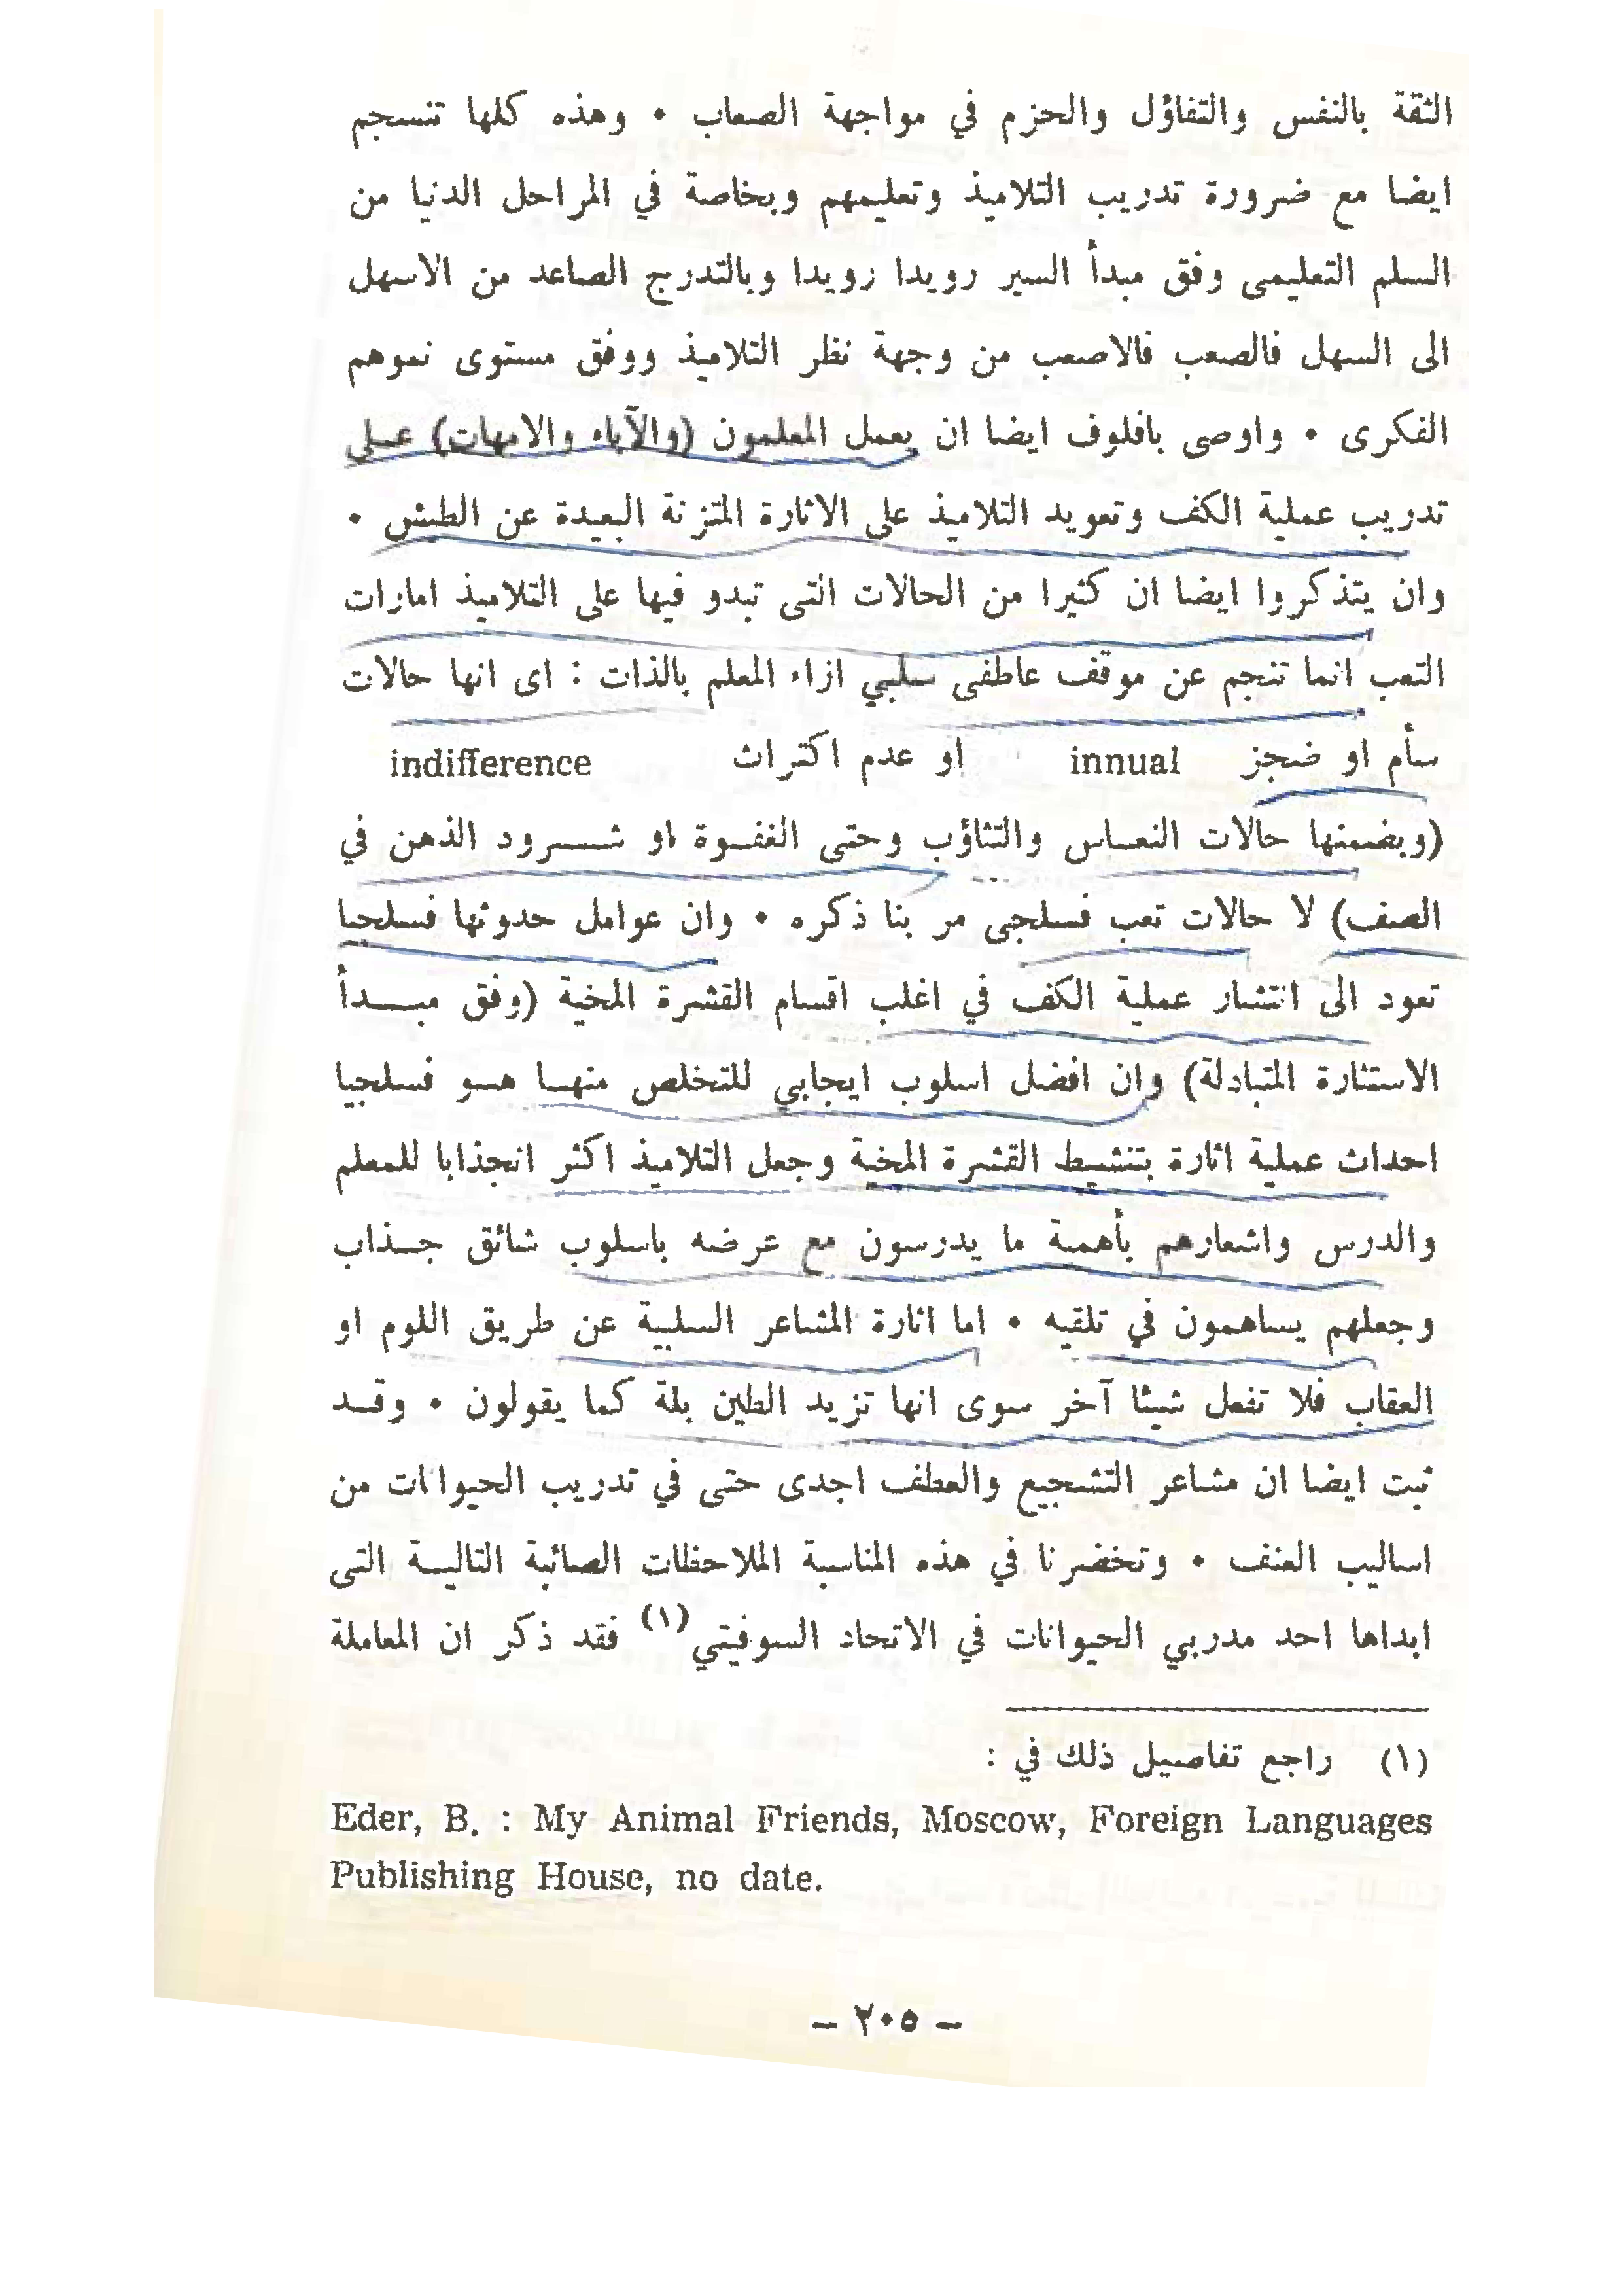 الثقة بالنفس والتفاؤل والحزم في مواجهة الصعاب • وهذه كلها تنسجم
ايضا مع ضرورة تدريب التلاميذ وتعليمهم وبخاصة في المراحل الدنيا من
السلم التعليمى وفق مبدأ السير رويدا رويدا وبالتدرج الصاعد من الاسهل
الى السهل فالصعب فالاصعب من وجهة نظر التلاميذ ووفق مستوى نموهم
الفكرى • واوصى بافلوف ايضا ان يعمل المعلمون (والآباء والامهات) عــلى
تدريب عملية الكف وتعويد التلاميذ على الاثارة المتزنة البعيدة عن الطيش •
وان يتذكروا ايضا ان كثيرا من الحالات التى تبدو فيها على التلاميذ امارات
التعب انما تنجم عن موقف عاطفى سلبي ازاء المعلم بالذات : اى انها حالات
سأم او ضجز innual او عدم اكتراث indifference
(وبضمنها حالات النعــاس والتثاؤب وحتى الغفــوة او شــــرود الذهن في
الصف) لا حالات تعب فسلجى مر بنا ذكره • وان عوامل حدوثها فسلجيا
تعود الى انتشار عملية الكف في اغلب اقسام القشرة المخية (وفق مبـــدأ
الاستثارة المتبادلة) وان افضل اسلوب ايجابي للتخلص منهــا هــو فسلجيا
احداث عملية اثارة بتنشيط القشرة المخية وجعل التلاميذ اكثر انجذابا للمعلم
والدرس واشعارهم بأهمية ما يدرسون مع عرضه باسلوب شائق جــذاب
وجعلهم يساهمون في تلقيه • اما اثارة المشاعر السلبية عن طريق اللوم او
العقاب فلا تفعل شيئا آخر سوى انها تزيد الطين بلة كما يقولون • وقــد
ثبت ايضا ان مشاعر التشجيع والعطف اجدى حتى في تدريب الحيوانات من
اساليب العنف • وتحضرنا في هذه المناسبة الملاحظات الصائبة التاليــة التى
ابداها احد مدربي الحيوانات في الاتحاد السوفيتي(١) فقد ذكر ان المعاملة
(١) راجع تفاصيل ذلك في :
Eder, B. : My Animal Friends, Moscow, Foreign Languages
Publishing House, no date.
– ٢٠٥ –